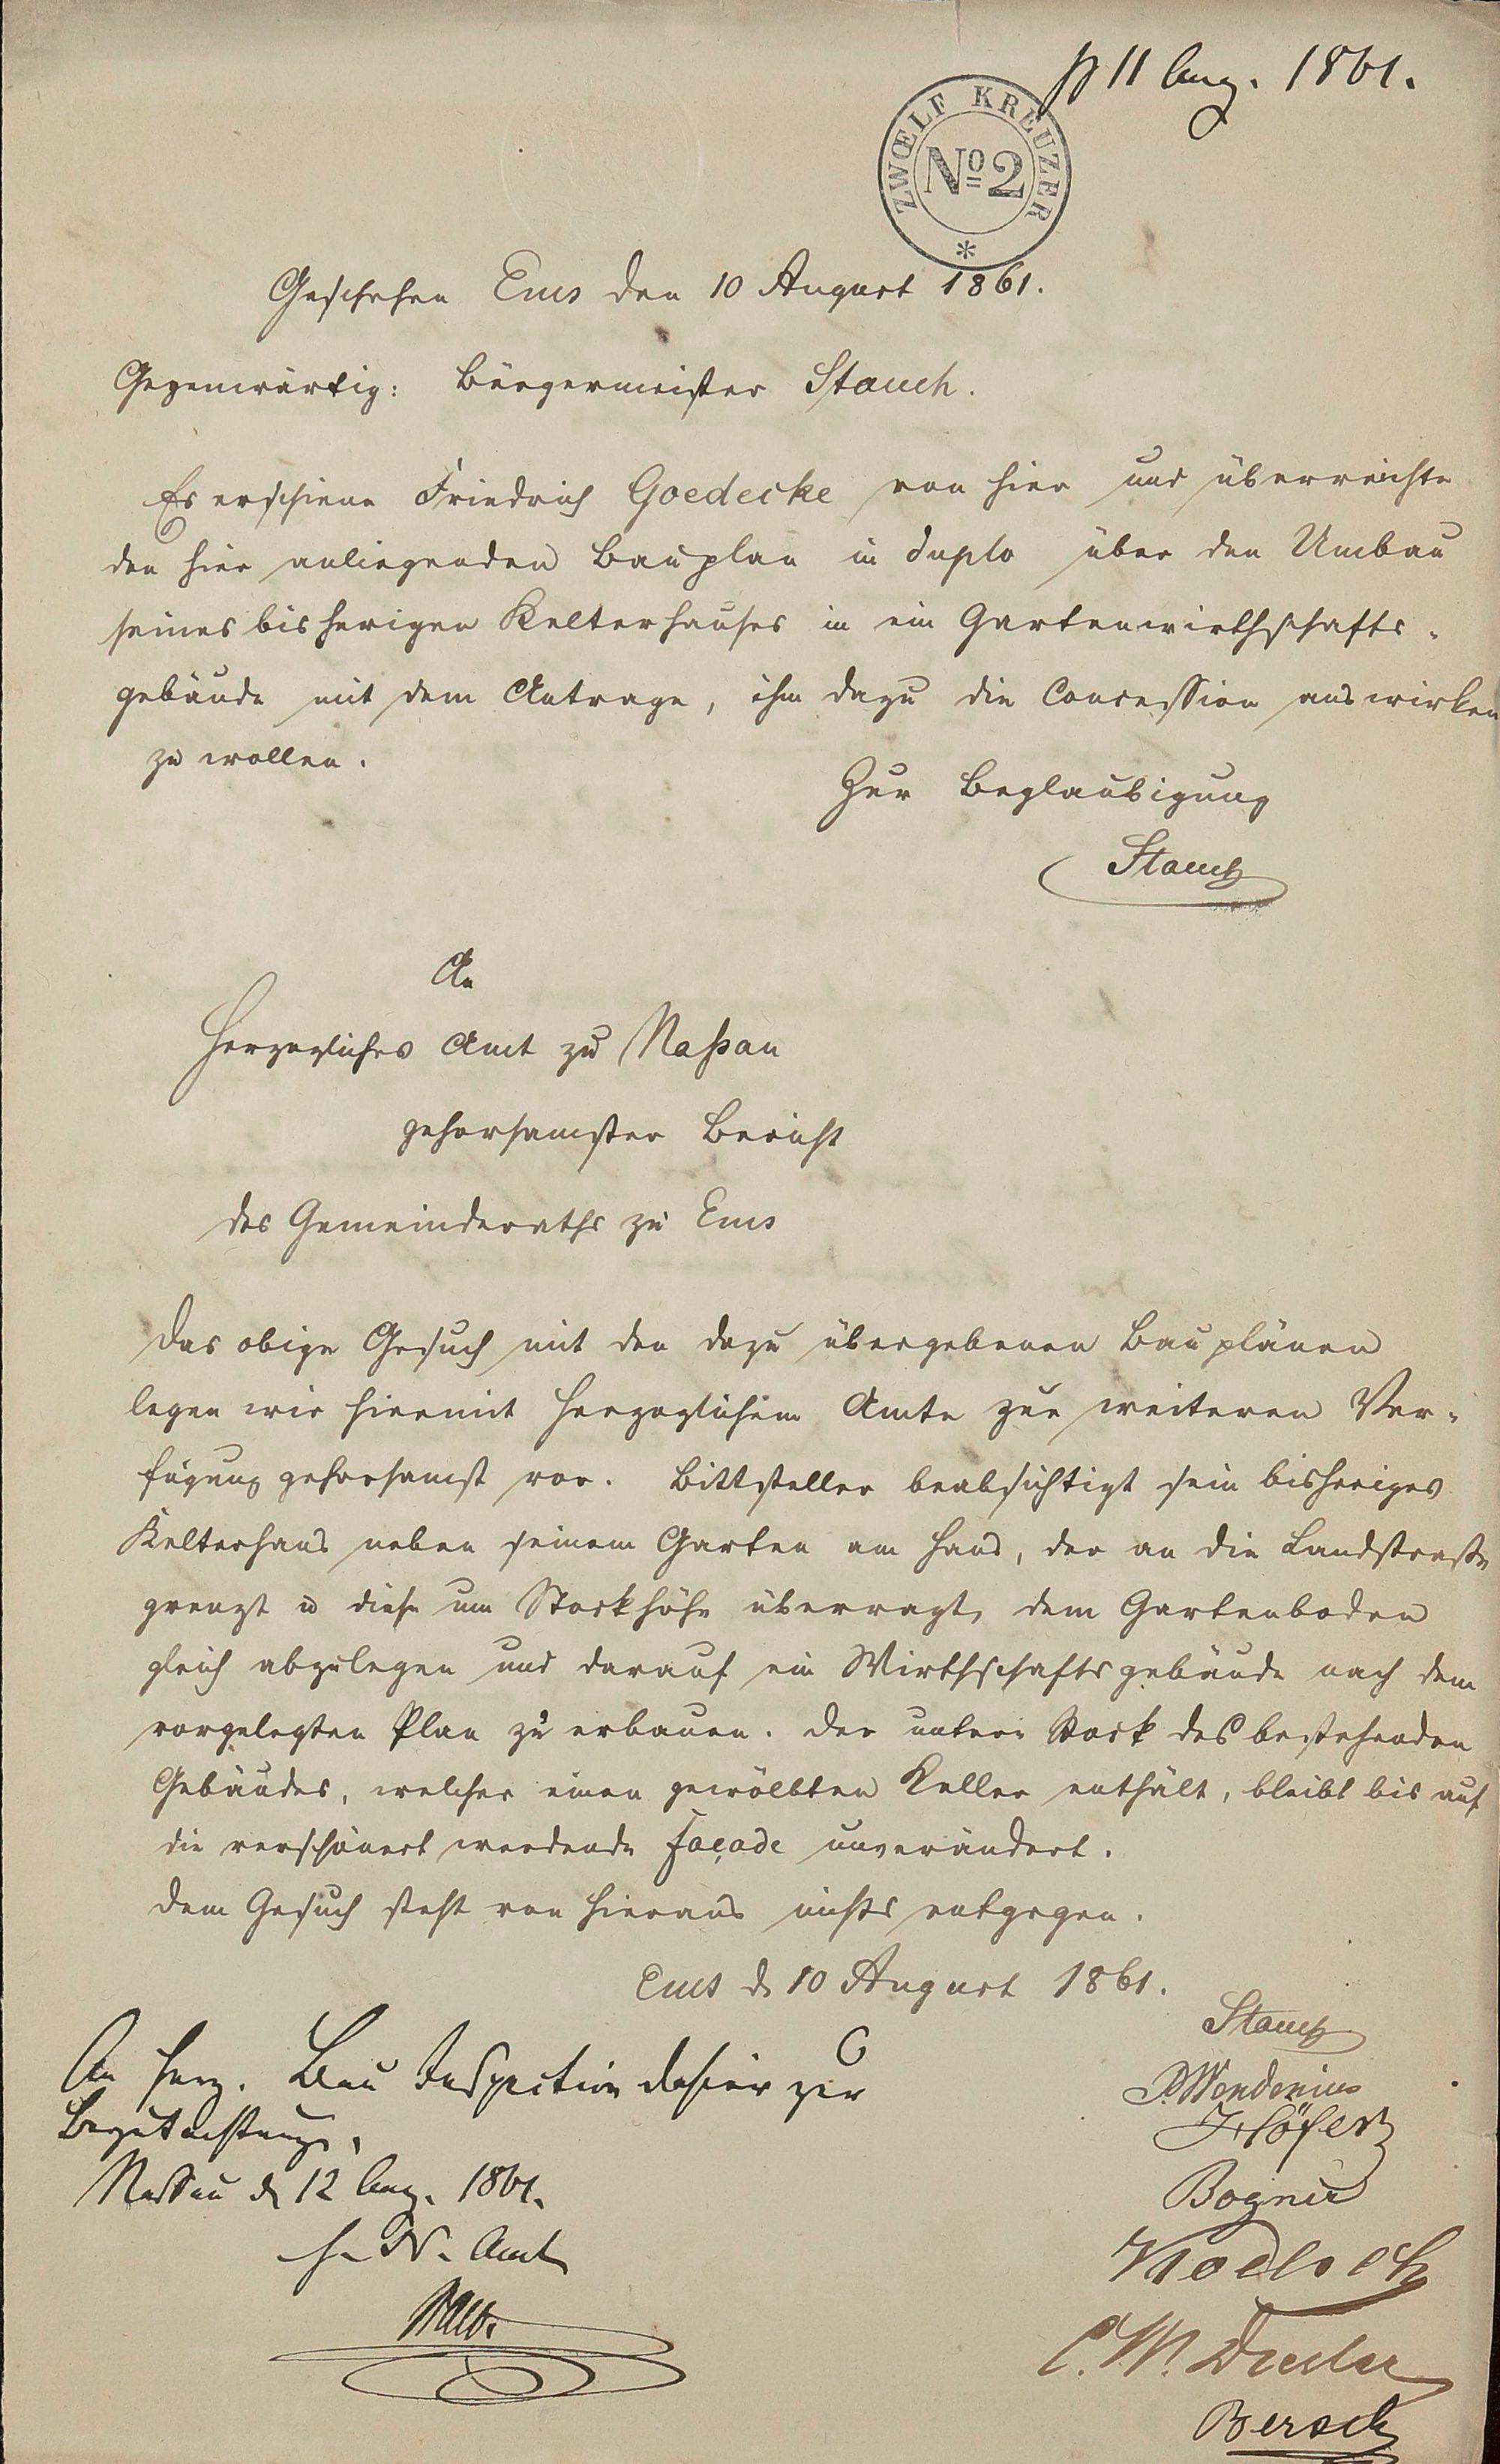 11 Aug. 1861.
ZWŒLF KREUZER
No 2
Geschehen Ems den 10 August 1861.
Gegenwärtig: Bürgermeister Stauch.
Es erschiene Friedrich Goedecke von hier und überreichte
den hier anliegenden Bauplan in duplo über den Umbau
seines bisherigen Kelterhauses in ein Gartenwirthschafts-
gebäude mit dem Antrage, ihm dazu die Concession auswirken
zu wollen.
Zur Beglaubigung
Stauch
An
Herzogliches Amt zu Naßau
gehorsamster Bericht
des Gemeinderaths zu Ems
Das obige Gesuch mit den dazu übergebenen Bauplänen
legen wir hiermit Herzoglichem Amte zur weiteren Ver-
fügung gehorsamst vor. Bittsteller beabsichtigt sein bisheriges
Kelterhaus neben seinem Garten am Haus, der an die Landstraße
grenzt u diese um Stockhöhe überragt, dem Gartenboden
gleich abzulegen und darauf ein Wirthschaftsgebäude nach dem
vorgelegten Plan zu erbauen. Der untere Stock des bestehenden
Gebäudes, welcher einen gewölbten Keller enthält, bleibt bis auf
die verschönert werdende façade unverändert.
Dem Gesuch steht von hieraus nichts entgegen.
Ems d. 10 August 1861.
Stauch
An Herz. Bau Inspection dahier zur
Begutachtung.
Nassau d. 12 Aug. 1861.
H. N. Amt
Bogner
Bersch